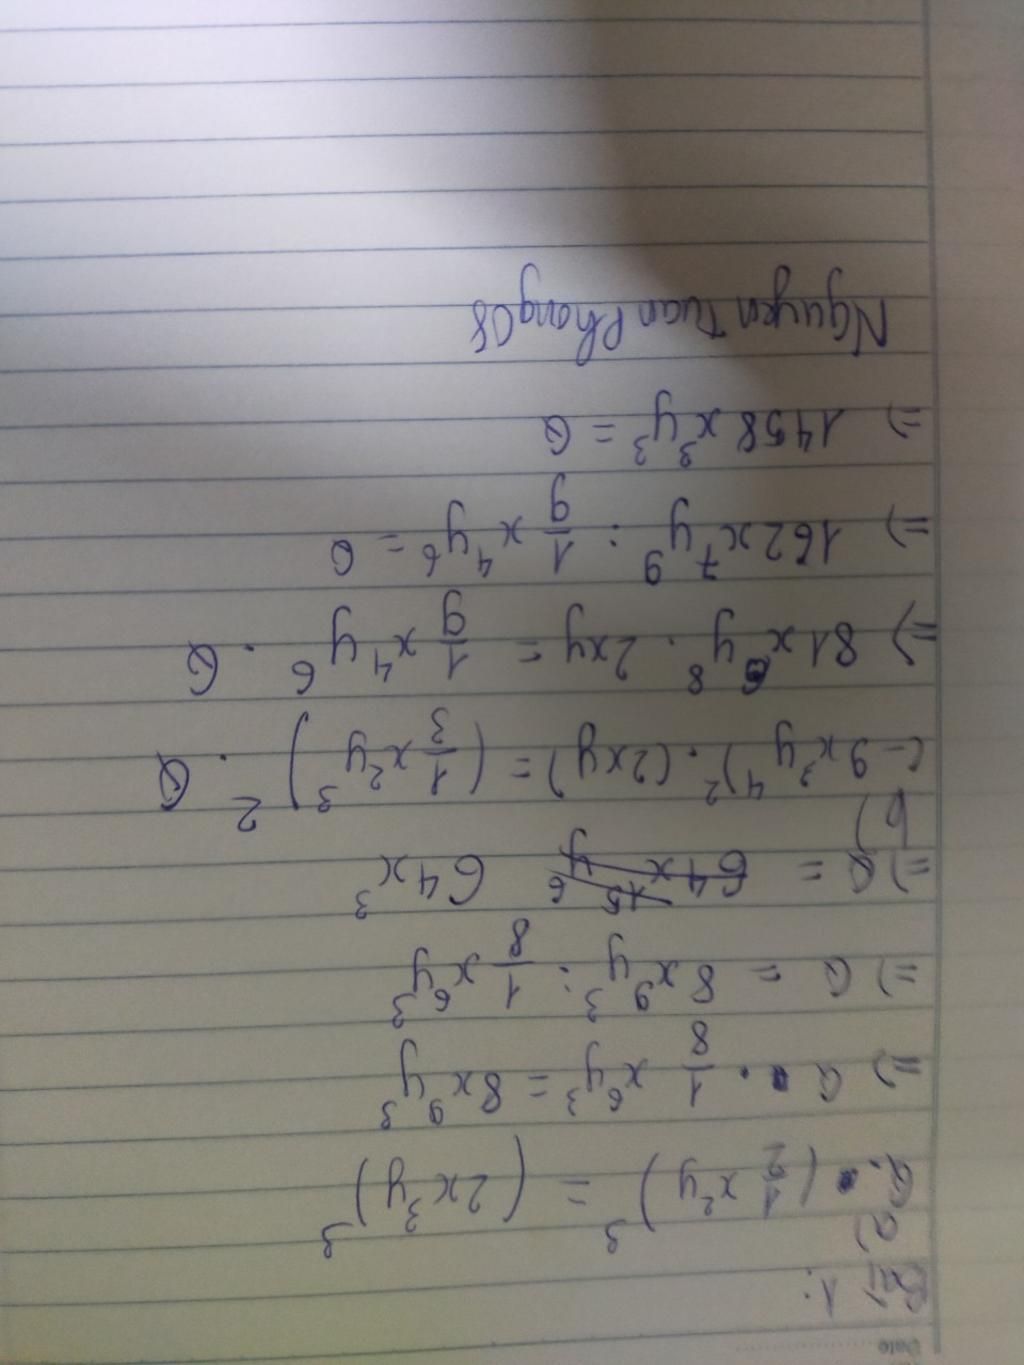 Date
Bài 1:
a)
Q . (1/2 x²y)³ = (2x³y)³
=> Q . 1/8 x⁶y³ = 8x⁹y³
=> Q = 8x⁹y³ : 1/8 x⁶y³
=> Q = 64x¹⁵y⁶ 64x³
b)
(-9x³y⁴)² . (2xy) = (1/3 x²y³)² . Q
=> 81x⁶y⁸ . 2xy = 1/9 x⁴y⁶ . Q
=> 162x⁷y⁹ : 1/9 x⁴y⁶ = Q
=> 1458x³y³ = Q
Nguyen Tuan Phong 08